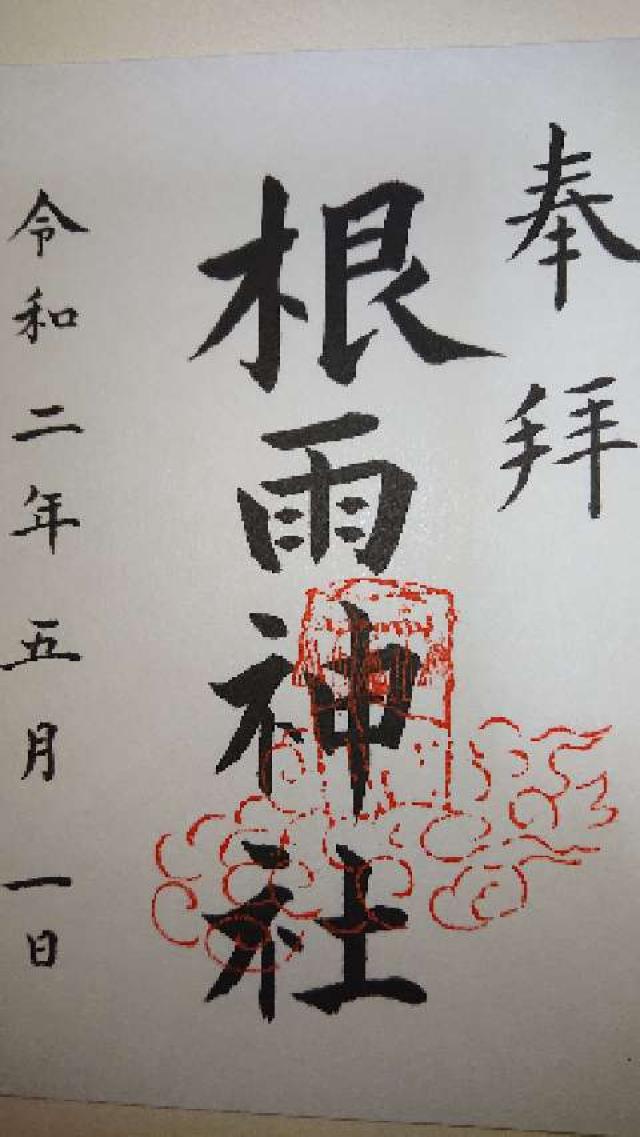 奉拝
根雨神社
令和二年五月一日